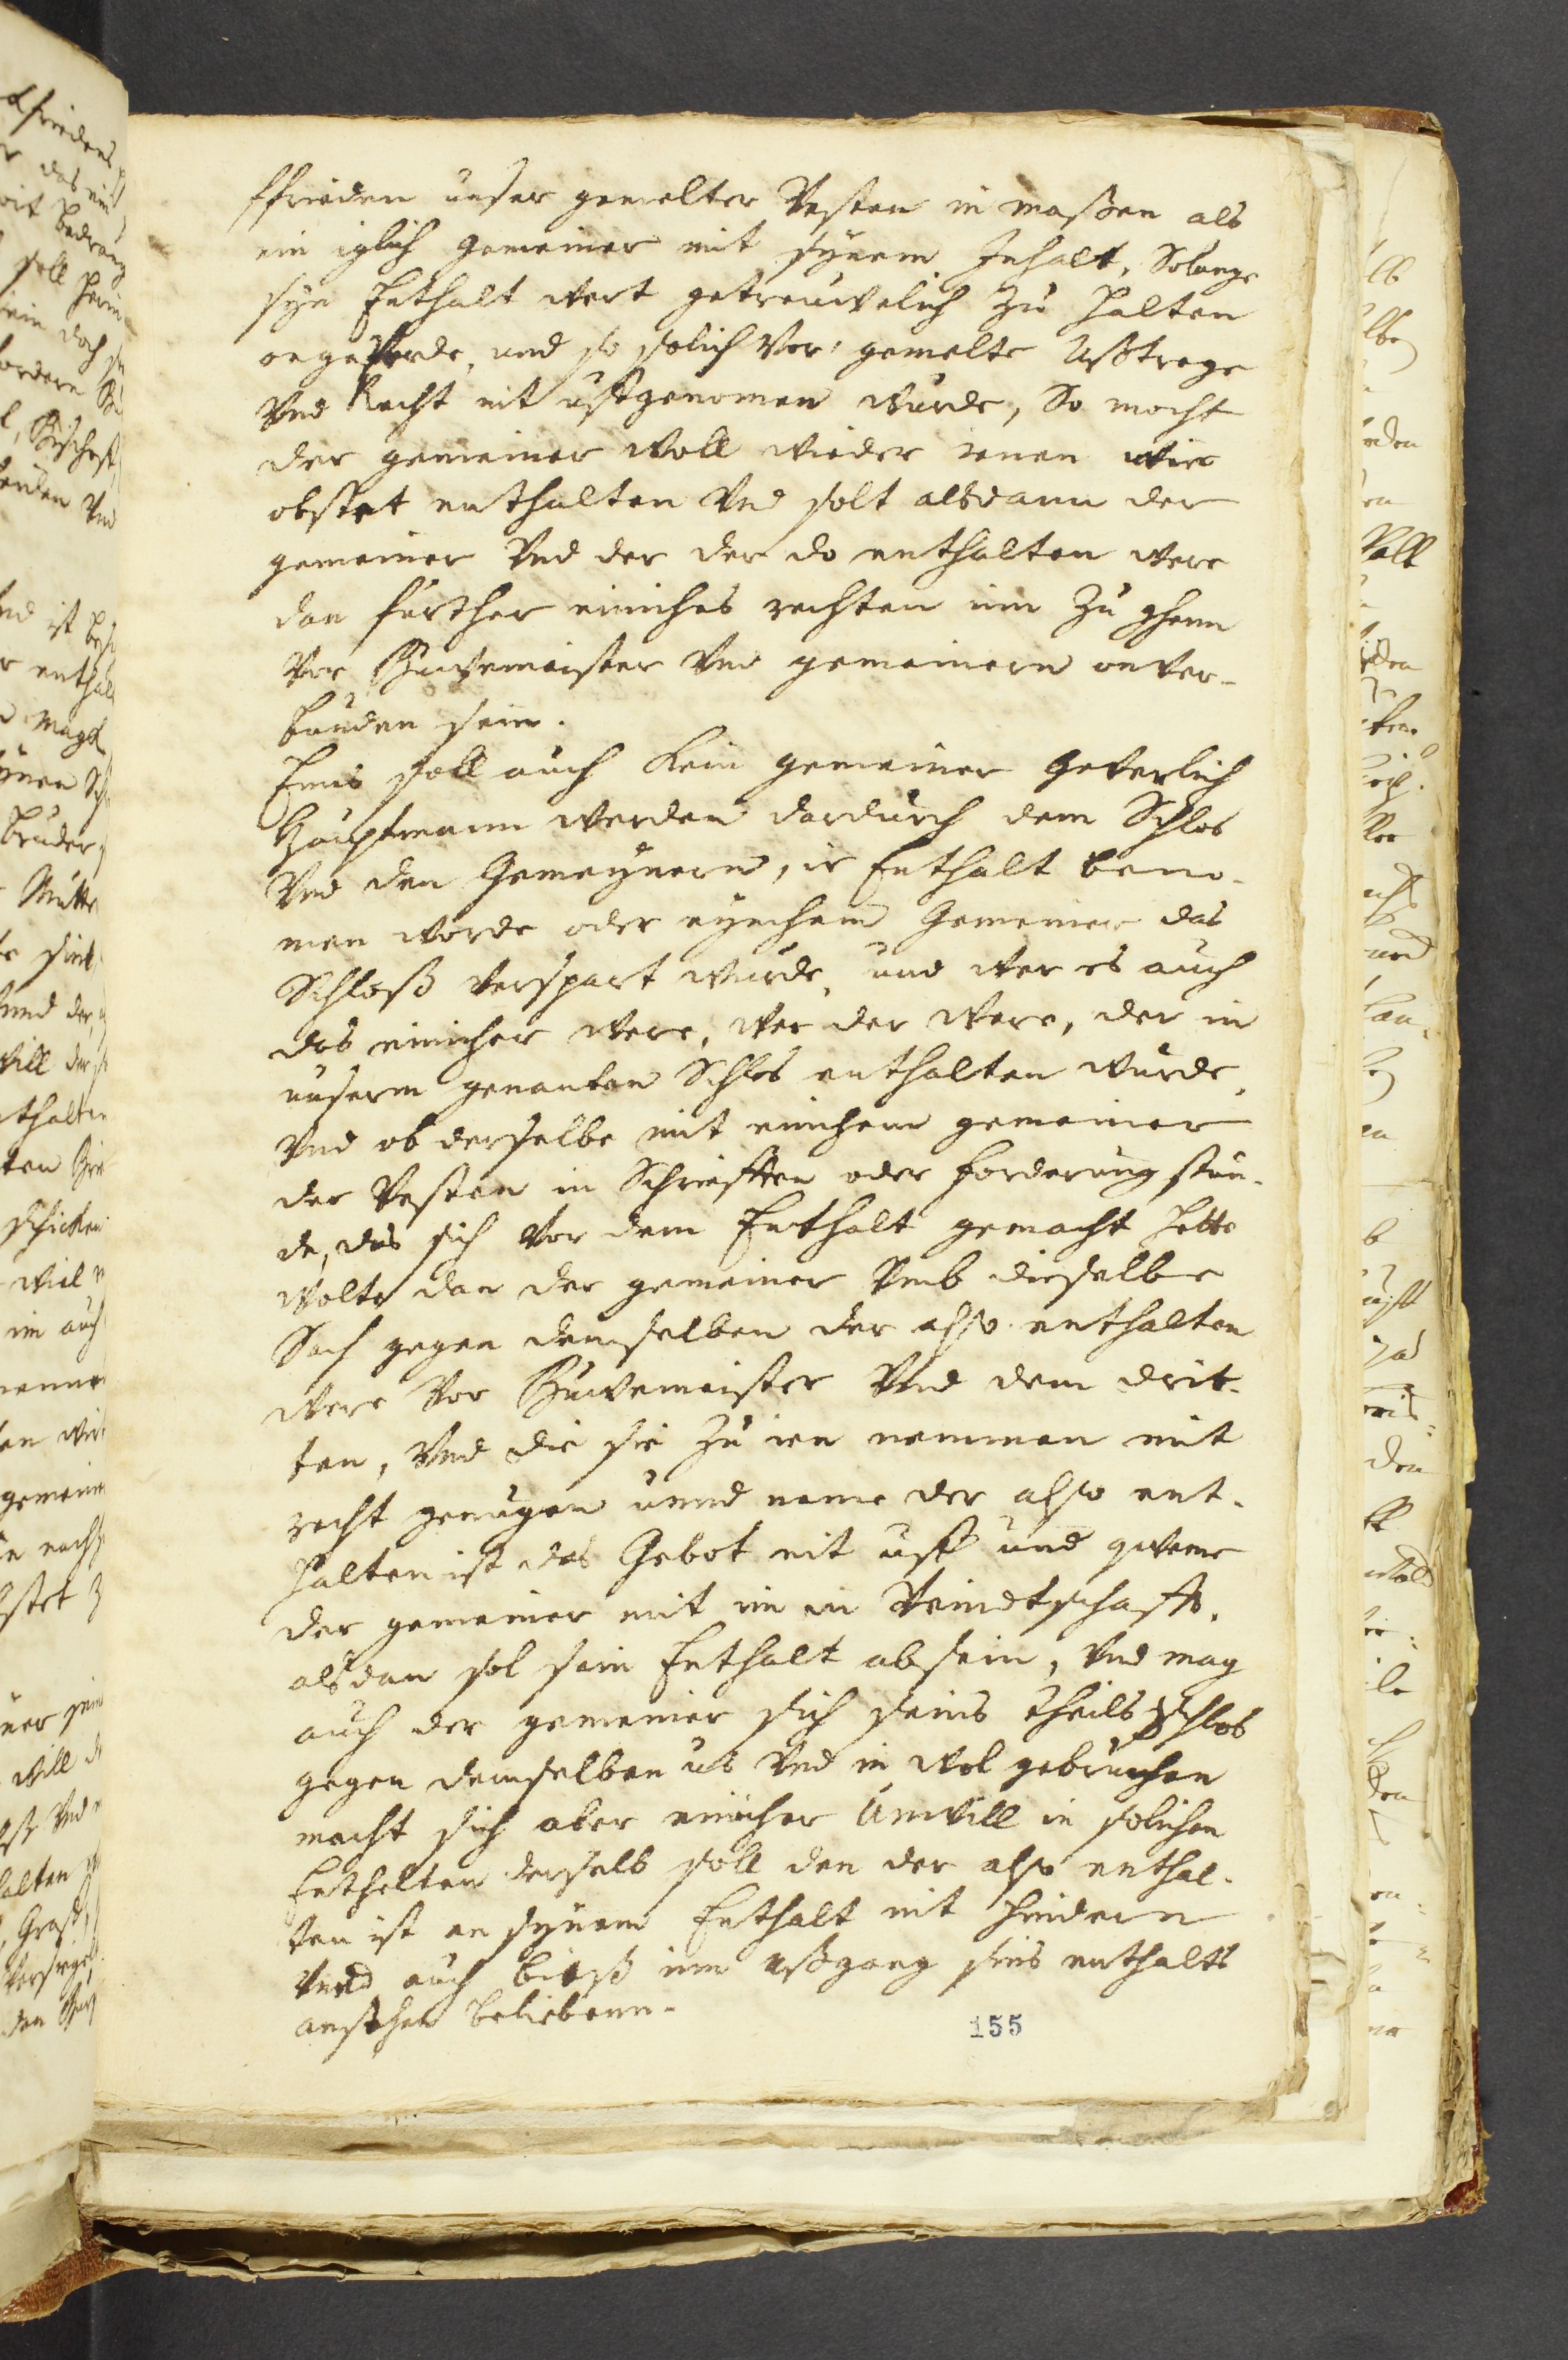 ffrieden unser gemelter Vesten in maßen als
ein iglich Gemeiner mit synem Inhalt, Solange
syn Enthalt wert getreuwelich zu halten
ongeverde, und so solich vor: gemelte Ußtrege
Vnd Recht nit uffgenomen wurde, So mocht
der gemeiner Woll wieder jenen wie
obstet enthalten Vnd solt alsdann der
gemeiner Vnd der der do enthalten were
dan further einiches rechten im zu ghenn
Vor Buwemeister Vnd gemeinern onver-
bunden sein.
Emis soll auch kein gemeiner Geverlich
Hauptmann werden dardurch dem Schlos
Vnd den Gemeynern, ir Enthalt beno-
men worde oder eynchem Gemeiner das
Schloß verspart wurde, und wer es auch
das einicher were, wer der were, der in
unserm genanten Schlos enthalten wurde,
Vnd ob derselbe mit einichem gemeiner
der Vesten in Schriefften oder forderung stun-
de, das sich vor dem Enthalt gemacht hette
wolte dan der gemeiner Vmb dieselbe
Sach gegen demselben der also enthalten
were Vor Buwemeister Vnd dem drit-
ten, Vnd die sie zu ien nemmen mit
recht genugen unnd neme der also ent-
halten ist das Gebot nit uff und queme
der gemeiner mit im in Veindtschafft,
alsdan sol sein Enthalt absein, Vnd mag
auch der gemeiner sich seins theils Schlos
gegen demselben us Vnd in wol gebruchen
macht sich aber einicher Unwill in solichen
Enthelten derselb soll den der also enthal-
ten ist an synem Enthalt nit hindern
Vnnd auch bieß im ußgang sins enthalts
anstehen beliebenn.
155